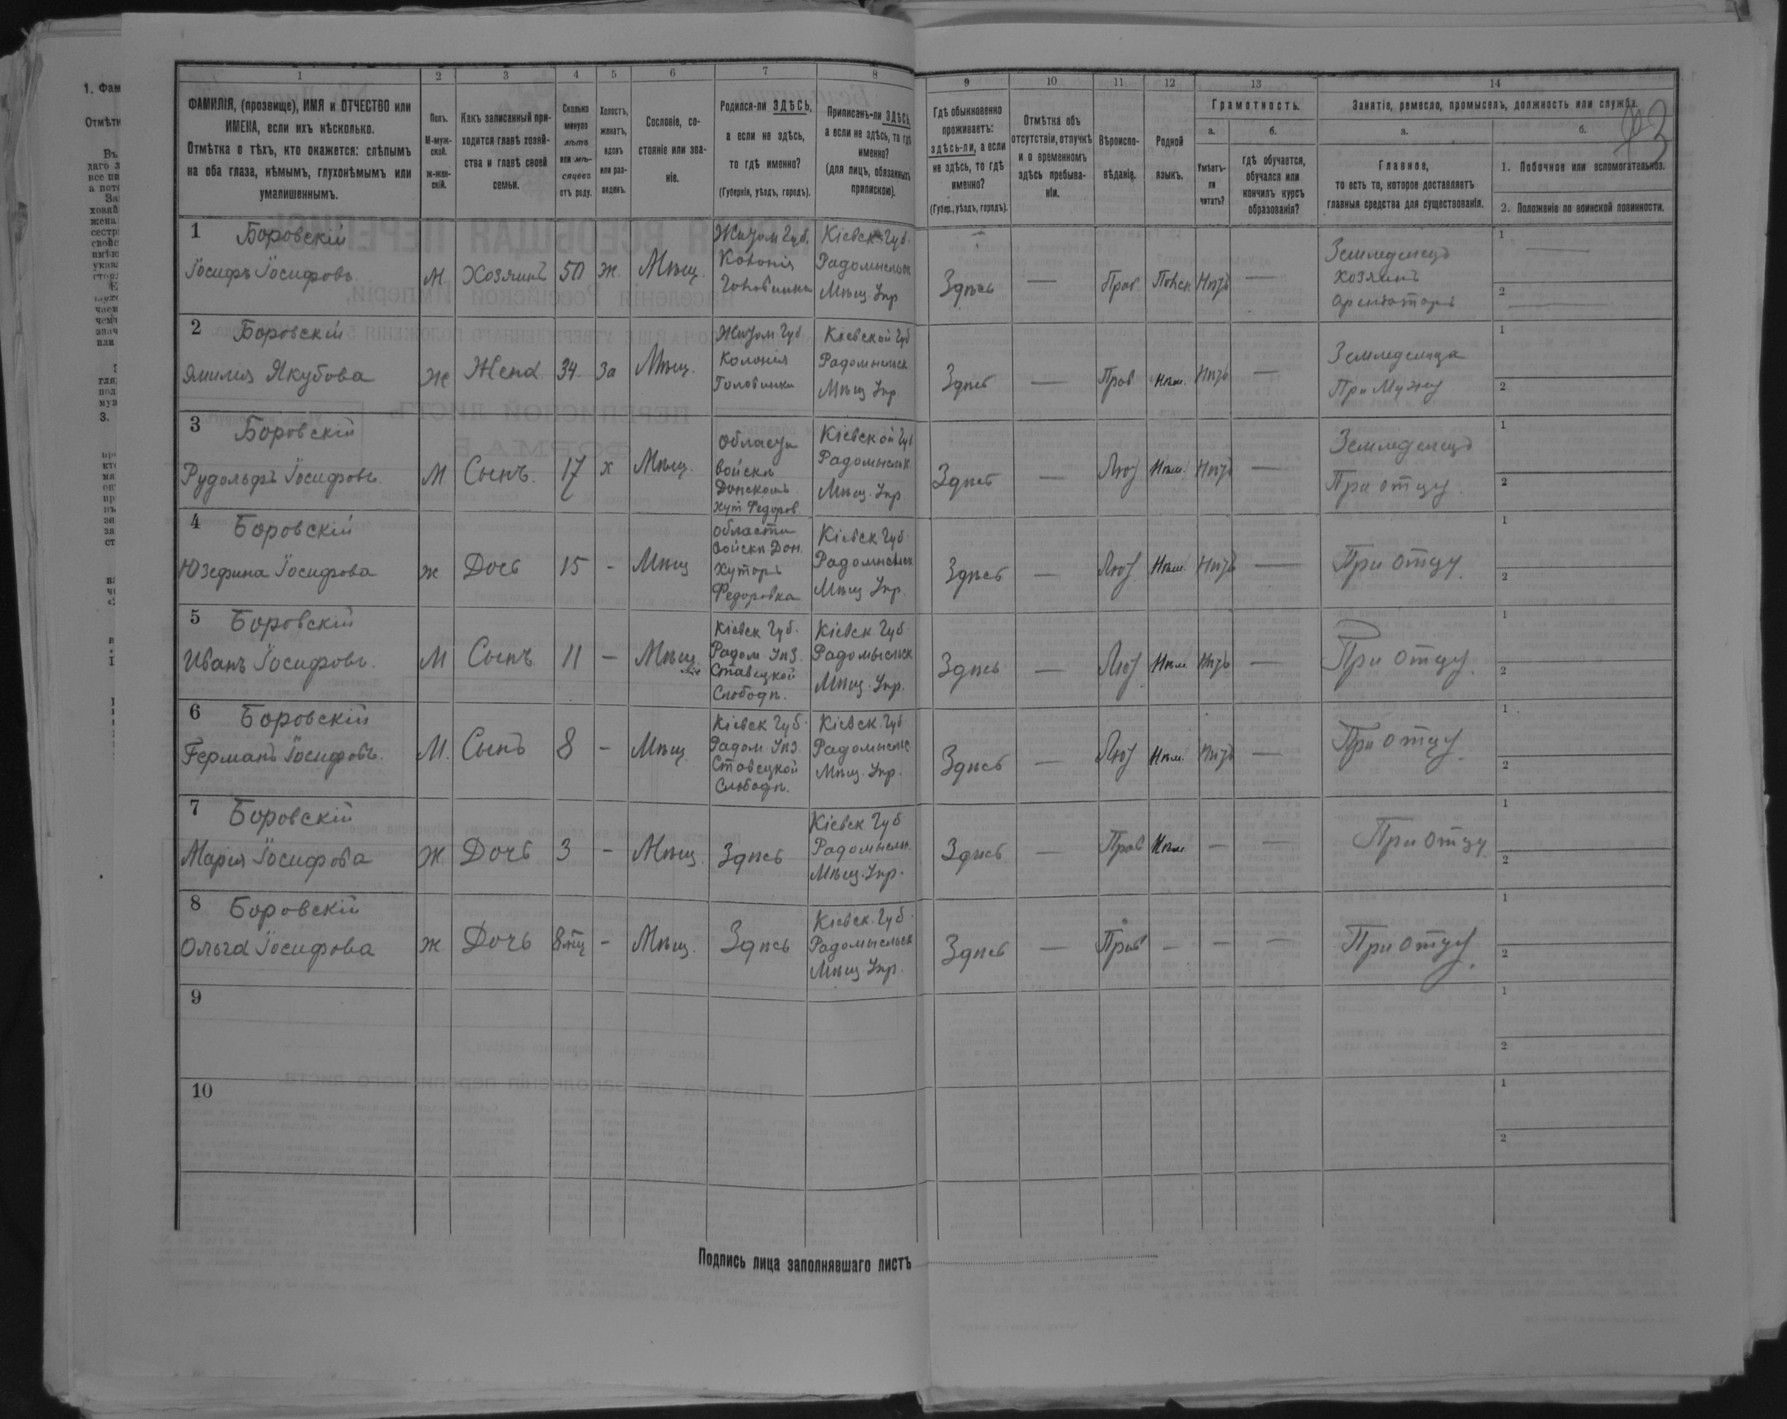 1 2 3 4 5 6 7 8 9 10 11 12 13 14
ФАМИЛІЯ, (прозвище), ИМЯ и ОТЧЕСТВО или
ИМЕНА, если ихъ нѣсколько.
Отмѣтка о тѣхъ, кто окажется: слѣпымъ
на оба глаза, нѣмымъ, глухонѣмымъ или
умалишеннымъ.
Полъ.
М-муж-
ской.
Ж-жен-
скій.
Какъ записанный при-
ходится главѣ хозяй-
ства и главѣ своей
семьи.
Сколько
минуло
лѣтъ
или мѣ-
сяцевъ
отъ роду.
Холостъ,
женатъ,
вдовъ
или раз-
веденъ.
Сословіе, со-
стояніе или зва-
ніе.
Родился-ли ЗДѢСЬ,
а если не здѣсь,
то гдѣ именно?
(Губернія, уѣздъ, городъ).
Приписанъ-ли ЗДѢСЬ,
а если не здѣсь, то гдѣ
именно?
(для лицъ, обязанныхъ
припискою).
Гдѣ обыкновенно
проживаетъ:
здѣсь-ли, а если
не здѣсь, то гдѣ
именно?
(Губер., уѣздъ, городъ).
Отмѣтка объ
отсутствіи, отлучкѣ
и о временномъ
здѣсь пребыва-
ніи.
Вѣроиспо-
вѣданіе.
Родной
языкъ.
Грамотность.
а.
Умѣетъ-
ли
читать?
б.
гдѣ обучается,
обучался или
кончилъ курсъ
образованія?
Занятіе, ремесло, промыселъ, должность или служба.
а.
Главное,
то есть то, которое доставляетъ
главныя средства для существованія.
б.
1. Побочное или вспомогательное.
2. Положеніе по воинской повинности.
1 Боровскій
Іосифъ Іосифовъ
М. Хозяинъ 50 ж. Мѣщ.
Житом Губ.
Колонія
Головинка
Кіевск Губ.
Радомысльск
Мѣщ. Упр
Здѣсь — Прав Польск. Нѣтъ —
Земледелецъ
Хозяинъ
Арендаторъ
1
2
2 Боровскій
Эмилия Якубова
Ж Жена 34 За Мѣщ.
Житом Губ
Колонія
Головинка
Кіевской Губ
Радомысльск
Мѣщ Упр
Здѣсь — Прав Нѣм. Нѣтъ —
При Мужу
1
2
3 Боровскій
Рудольфъ Іосифовъ
М Сынъ. 17 х Мѣщ.
Области
Войска
Донскаго
Хут Федоров
Кіевской Губ
Радомысльск
Мѣщ. Упр
Здѣсь — Лют Нѣм. Нѣтъ —
Земледелецъ
При отцу.
1
2
4 Боровскій
Юзефина Іосифова
ж Дочь 15 - Мѣщ
Области
Войска Дон.
Хуторъ
Федоровка
Кіевск Губ.
Радомысльск
Мѣщ Упр.
Здѣсь — Лют Нѣм. Нѣтъ —
При отцу.
1
2
5 Боровскій
Иванъ Іосифовъ.
М Сынъ 11 — Мѣщ.
Кіевск Губ.
Радом Уѣз.
Ставецкой
Слободѣ.
Кіевск. Губ
Радомысльск
Мѣщ. Упр.
Здѣсь — Лют Нѣм Нѣтъ —
При отцу.
1
2
6 Боровскій
Германъ Іосифовъ.
М. Сынъ 8 - Мѣщ.
Кіевск Губ.
Радом. Уѣз.
Ставецкой
Слободѣ.
Кіевск. Губ
Радомысльс
Мѣщ. Упр.
Здѣсь — Лют Нѣм. Нѣтъ —
При отцу.
1
2
7 Боровскій
Мария Іосифова
Ж Дочь 3 - Мѣщ. Здѣсь
Кіевск Губ
Радомысльск.
Мѣщ. Упр.
Здѣсь — Прав Нѣм — —
При отцу.
1
2
8 Боровскій
Ольга Іосифова
ж Дочь 8 мц - Мѣщ. Здѣсь
Кіевск. Губ.
Радомысльск
Мѣщ Упр.
Здѣсь — Прав — — —
При отцу.
1
2
9
1
2
10
1
2
Подпись лица заполнявшаго листъ